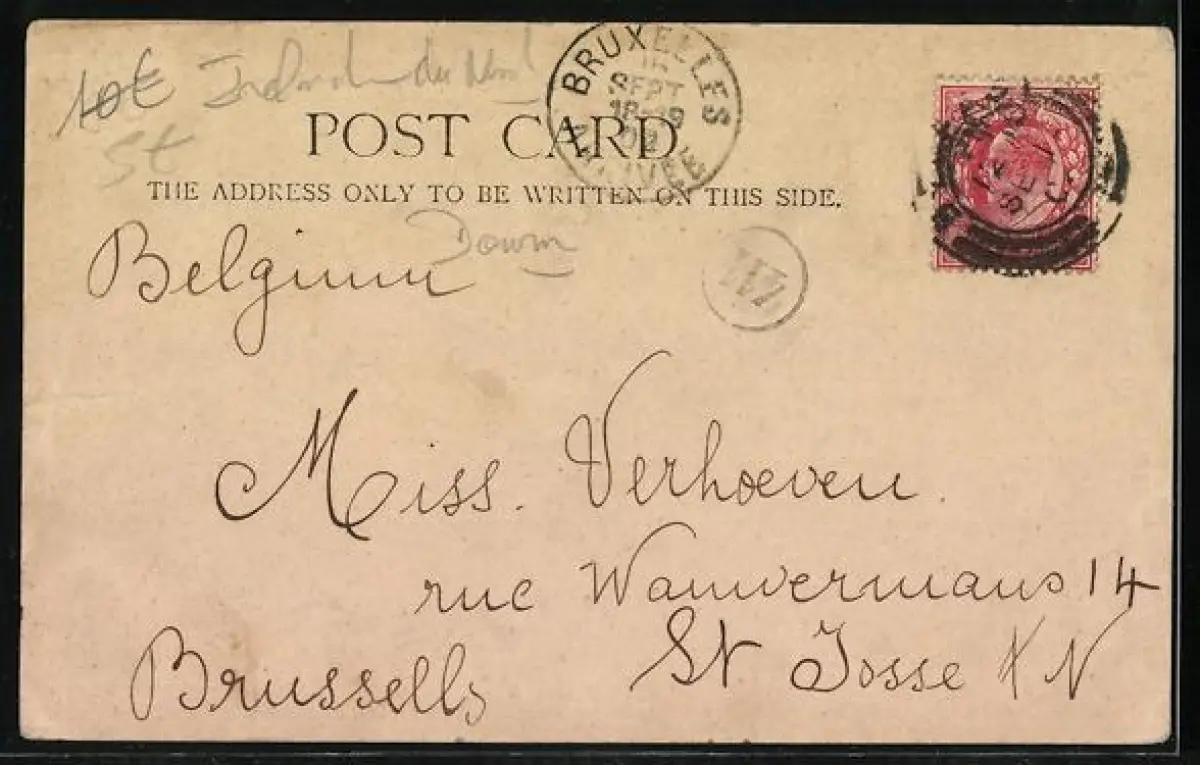 10€ Irland du Nord
St
POST CARD
THE ADDRESS ONLY TO BE WRITTEN ON THIS SIDE.
BRUXELLES
SEPT
18-19
ARRIVEE
Down
Belgium
Miss. Verhoeven.
rue Wauwermans 14
St Josse X N
Brussells